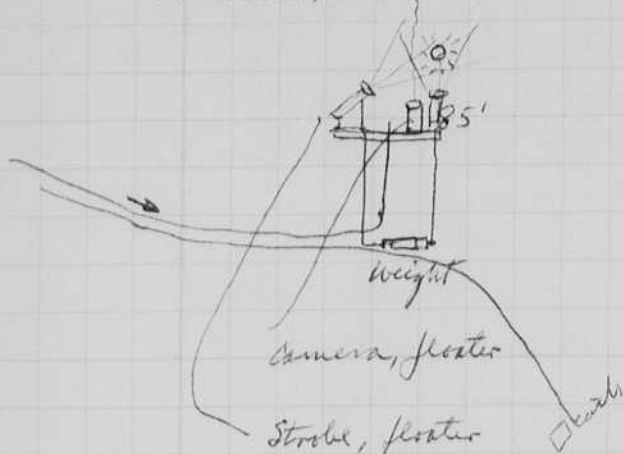 85'
weight
Camera, floater
Strobe, floater